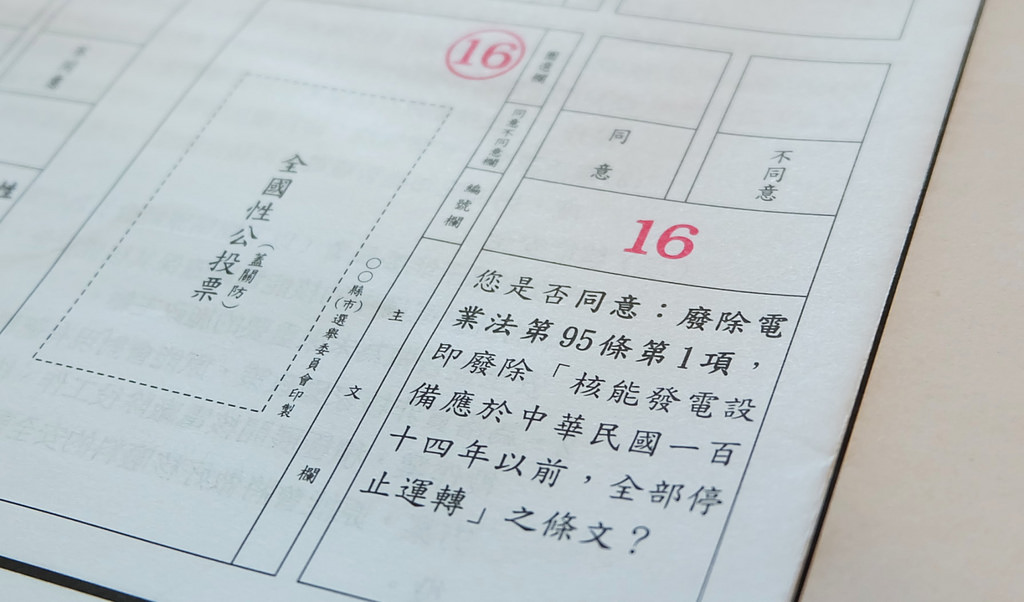 16
圈選欄
同意不同意欄
編號欄
主文欄
同意
不同意
16
您是否同意：廢除電
業法第95條第1項，
即廢除「核能發電設
備應於中華民國一百
十四年以前，全部停
止運轉」之條文？
全國性公投票
（蓋關防）
○○縣(市)選舉委員會印製
不同意
性